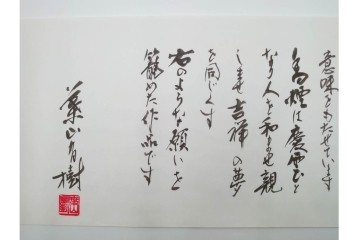 意味をもたせています
香煙は慶雲となり
なり人を和ませ親
しませ吉祥の夢
を同じくす
右のような願いを
籠めた作品です
葉山有樹